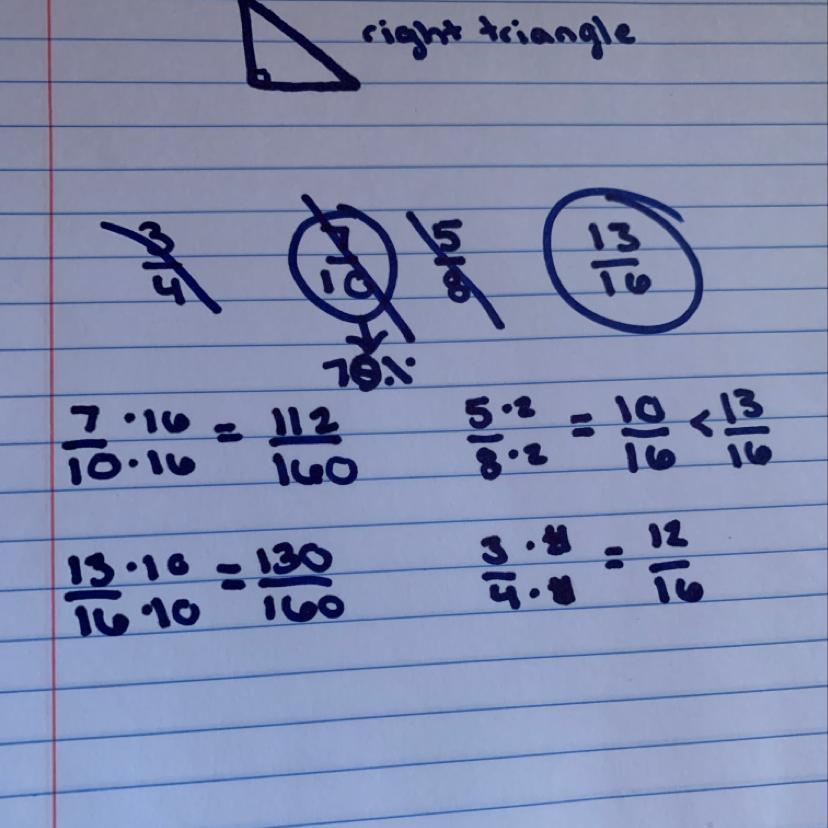 right triangle
3/4 7/10 5/8 13/16
70%
7/10 · 16/16 = 112/160 5/8 · 2/2 = 10/16 < 13/16
13/16 · 10/10 = 130/160 3/4 · = 12/16